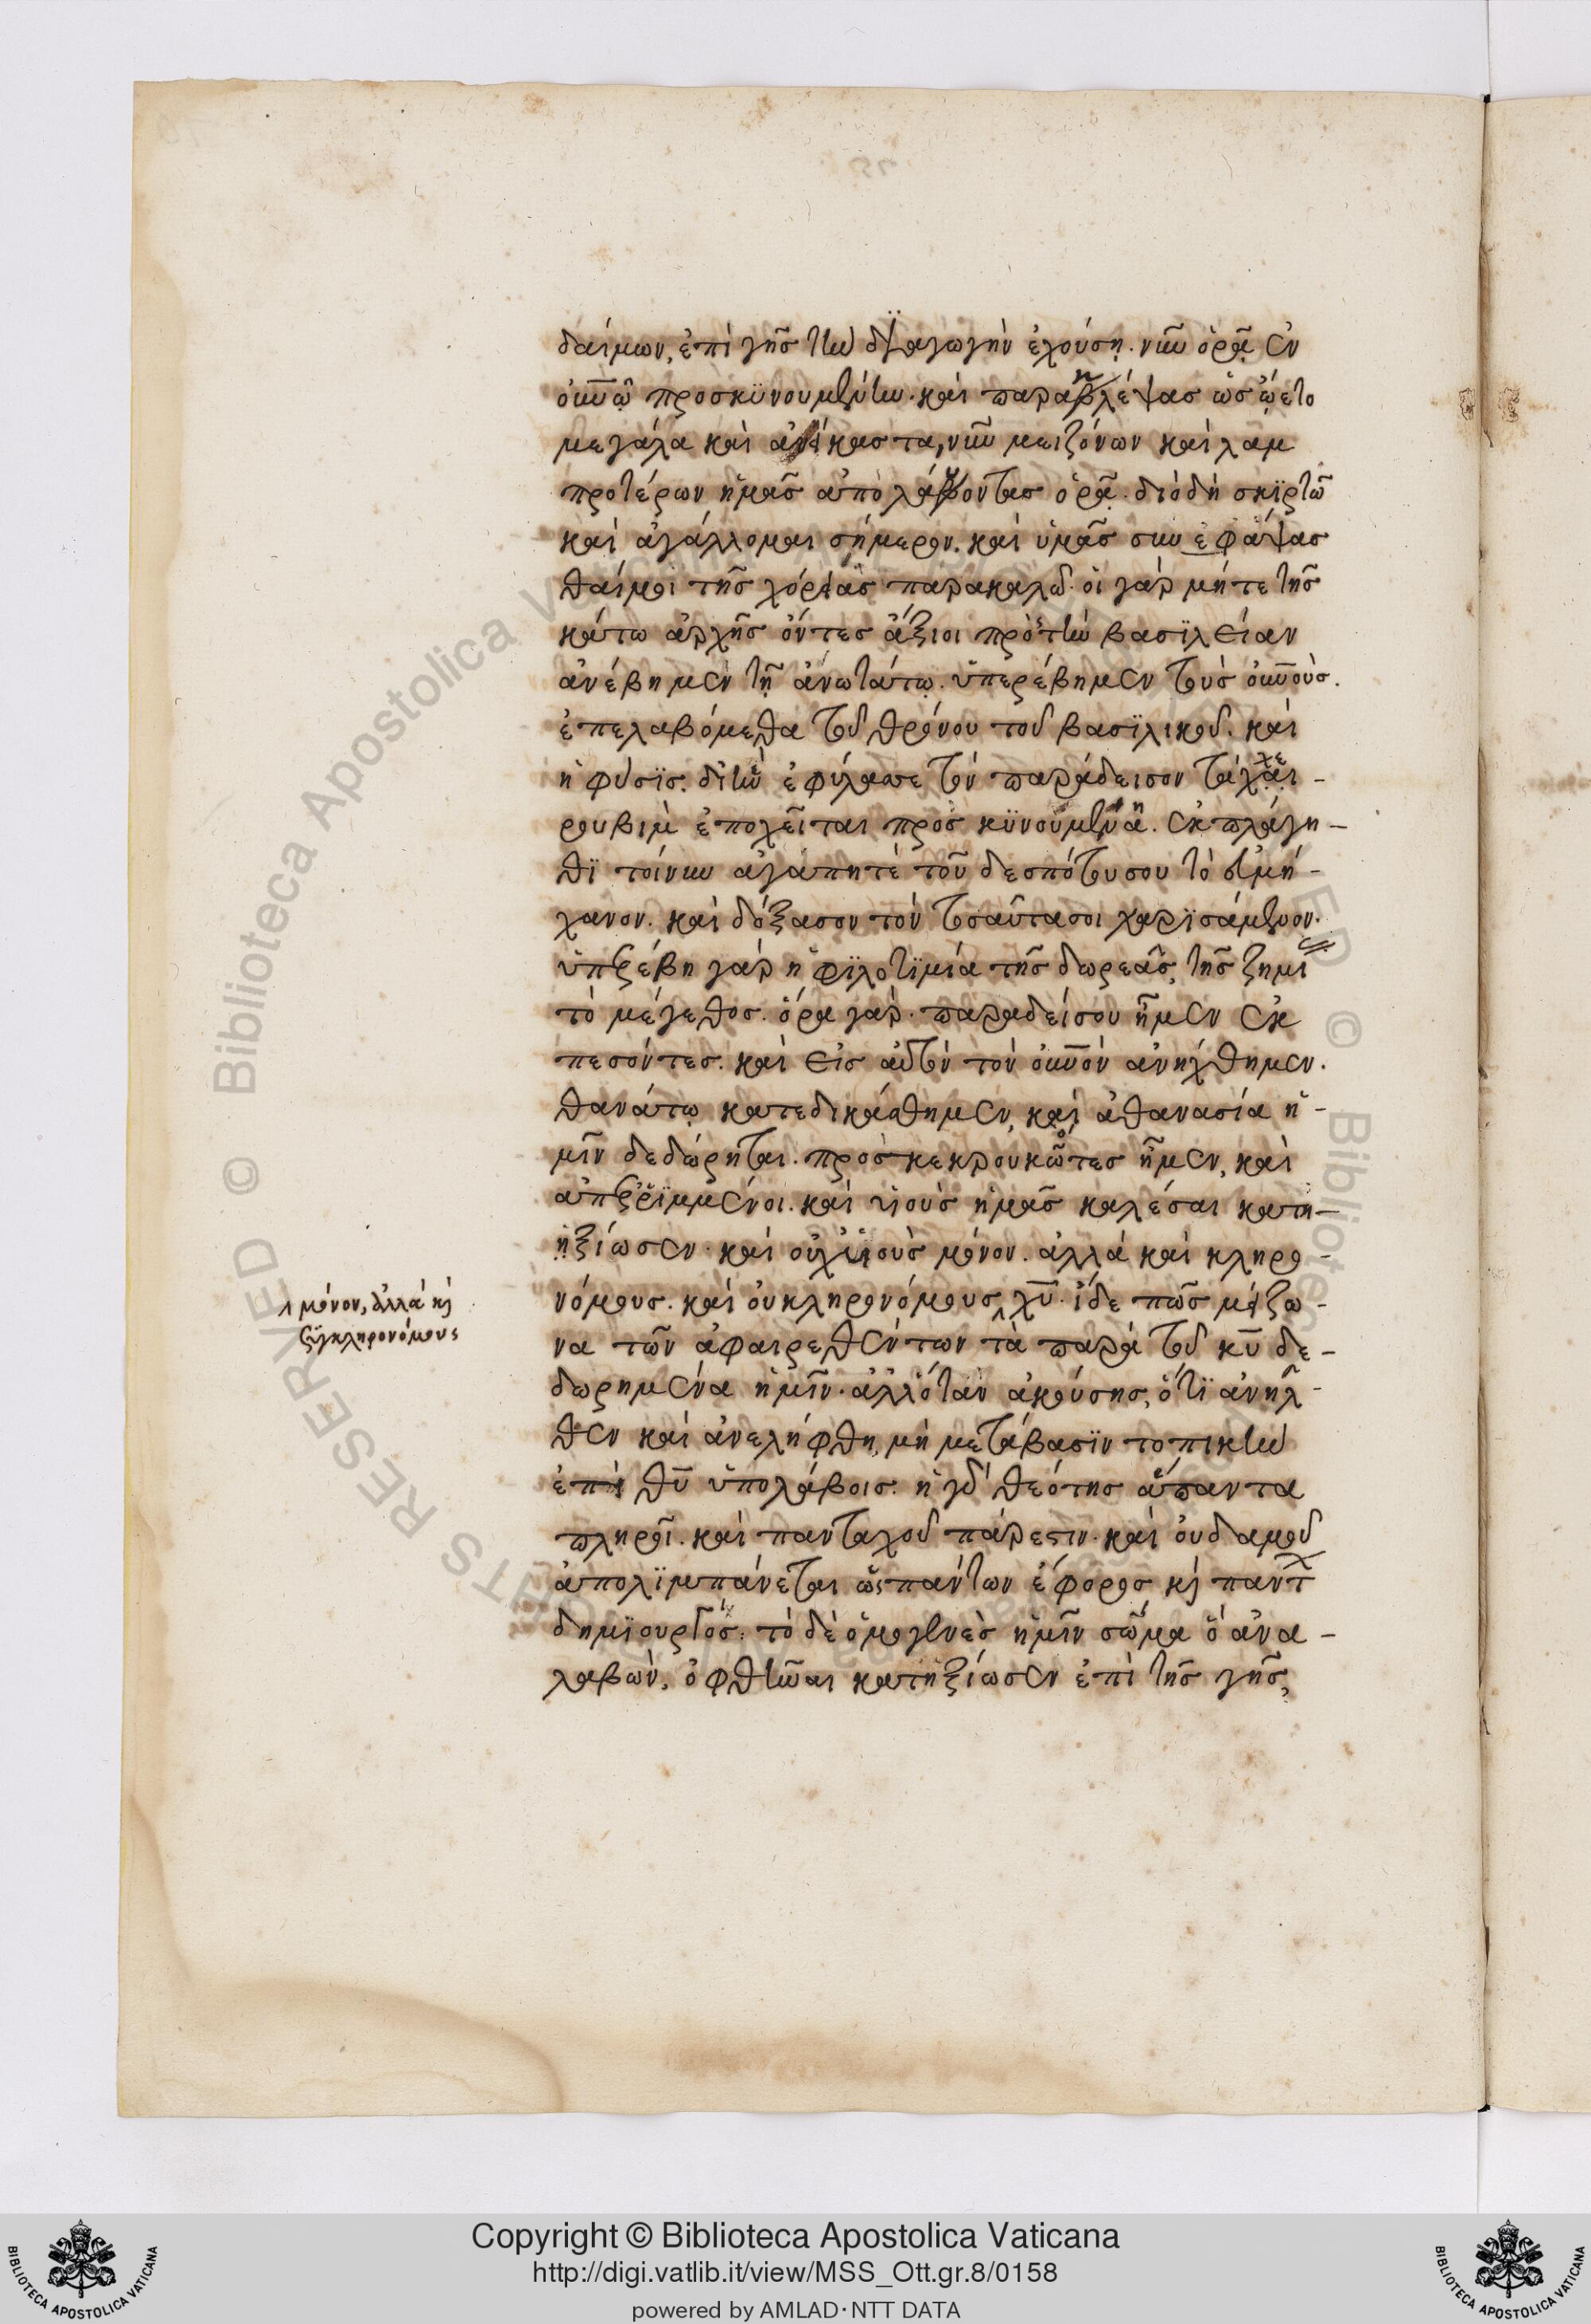 δαίμων, ἐπὶ γῆς τὴν διαγωγὴν ἐχούσῃ. νῦν ὁρᾷ ἐν
οὐνῷ προσκϋνουμένην. καὶ παραβλέψας ὡς ᾤετο
μεγάλα καὶ ἀνήκαστα, νῦν μειζόνων καὶ λαμ
προτέρων ἡμᾶς ἀπολάβοντας ὁρᾷ. διὸ δὴ σκϊρτῶ
καὶ ἀγάλλομαι σήμερον. καὶ ὑμᾶς συνεφάψας
θαί μοι τῆς χορείας παρακαλῶ. οἱ γὰρ μήτε τῆς
κάτω ἀρχῆς ὄντες ἄξιοι πρὸς τὴν βασϊλείαν
ἀνέβημεν τῇ ἀνωτάτῳ. ὑπερέβημεν τοὺς οὐνοὺς.
ἐπελαβόμεθα τοῦ θρόνου τοῦ βασϊλικοῦ. καὶ
ἡ φύσϊς. δι' ἣν ἐφύλαττε τὸν παράδεισον τὰ χε
ρουβιμ ἐποχεῖται προσκϋνουμένη. ἐκπλάγη-
θϊ τοίνυν ἀγαπητὲ τοῦ δεσπότου σου τὸ εὐμή-
χανον. καὶ δόξασον τὸν τοσαῦτα σοι χαρϊσάμενον.
ὑπερέβη γὰρ ἡ φϊλοτϊμία τῆς δωρεᾶς, τῆς ζημί
τὸ μέγεθος. ὅρα γὰρ. παραδείσου ἦμεν ἐκ
πεσόντες. καὶ εἰς αὐτὸν τὸν οὐνὸν ἀνήχθημεν.
θανάτῳ κατεδικάσθημεν, καὶ ἀθανασία ἡ-
μῖν δεδώρηται. προσκεκρουκότες ἦμεν, καὶ
ἀπερρϊμμένοι. καὶ υἱοὺς ἡμᾶς καλέσαι κατη-
ηξίωσεν. καὶ οὐχ υἱοὺς μόνον. ἀλλὰ καὶ κληρο-
νόμους. καὶ οὐ κληρονόμους χυ. ἴδε πῶς μείζο-
λ μόνον, ἀλλὰ κὶ
συγκληρονόμους
να τῶν ἀφαιρεθέντων τὰ παρὰ τοῦ κυ δε-
δωρημένα ἡμῖν. ἀλλ' ὅταν ἀκούσῃς, ὅτϊ ἀνῆλ-
θεν καὶ ἀνελήφθη, μὴ μετάβασϊν τοπικὴν
ἐπὶ θυ ὑπολάβοις. ἡ γὰρ θεότης ἅπαντα
πληροῖ. καὶ πανταχοῦ πάρεστιν. καὶ οὐδαμοῦ
ἀπολϊμπάνεται ὡς πάντων ἔφορος κὶ παντ
δημϊουργός. τὸ δὲ ὁμογενὲς ἡμῖν σῶμα ὃ ἀνα-
λαβών, ὀφθῆναι κατηξίωσεν ἐπὶ τῆς γῆς,
Copyright © Biblioteca Apostolica Vaticana
http://digi.vatlib.it/view/MSS_Ott.gr.8/0158
powered by AMLAD·NTT DATA